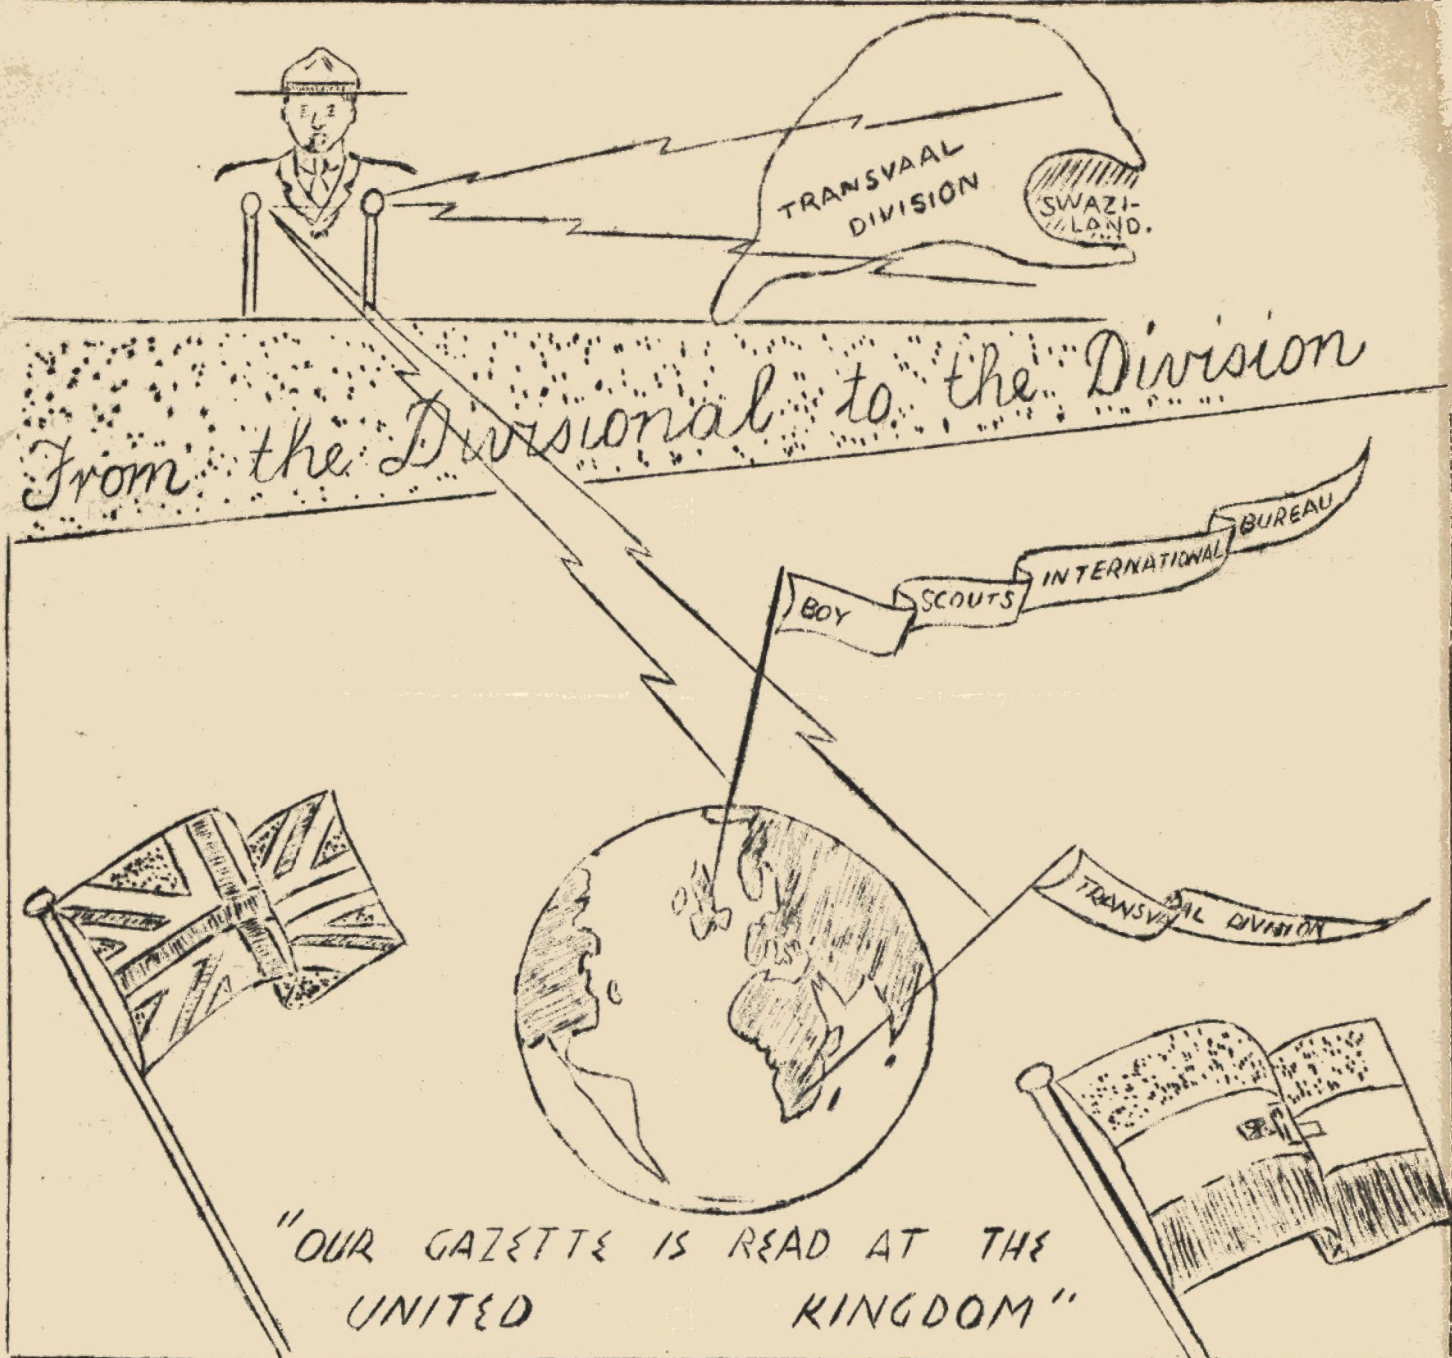 TRANSVAAL
DIVISION
SWAZI-
LAND.
From the Divisional to the Division
BOY SCOUTS INTERNATIONAL BUREAU
TRANSVAAL DIVISION
"OUR GAZETTE IS READ AT THE
UNITED KINGDOM"